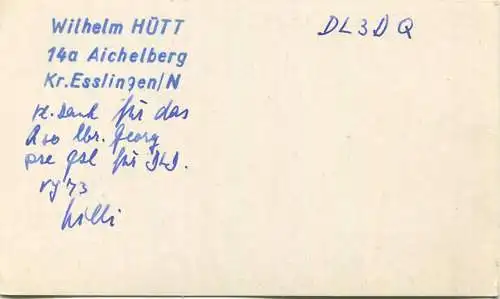 Wilhelm HÜTT
14a Aichelberg
Kr.Esslingen/N
DL3DQ
Dank für das
lbr. Georg
pse qsl für DLD.
vy 73
Willi